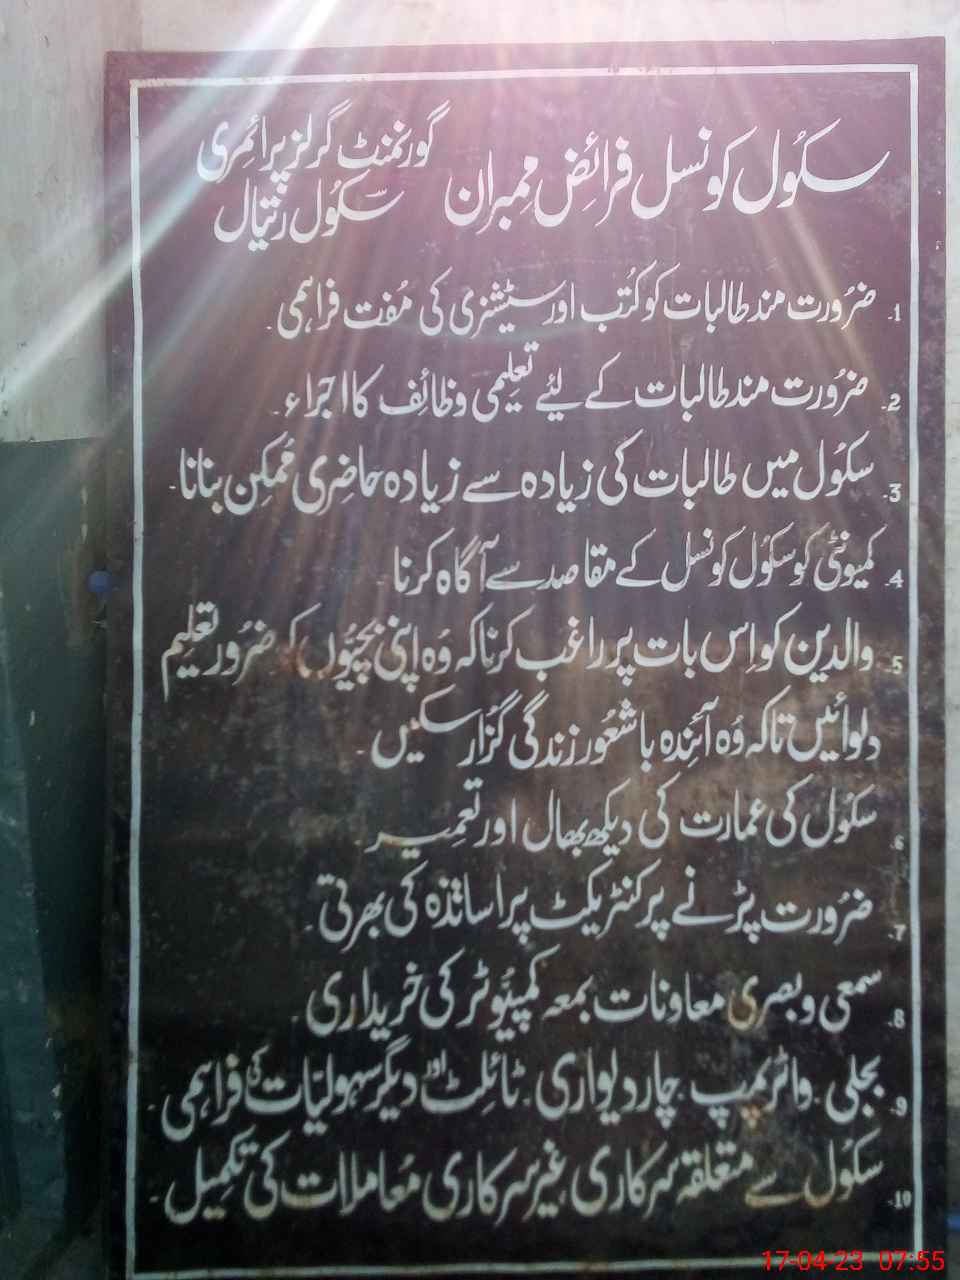 سکُول کونسل فرائض ممبران
گورنمنٹ گرلز پرائمری
سکُول رتیال
1۔ ضرُورت مند طالبات کو کُتب اور سٹیشنری کی مُفت فراہمی۔
2۔ ضرُورت مند طالبات کے لیٔے تعلِیمی وظائف کا اجراء۔
3۔ سکُول میں طالبات کی زیادہ سے زیادہ حاضِری مُمکِن بنانا۔
4۔ کمیونٹی کو سکُول کونسل کے مقاصد سے آگاہ کرنا
5۔ والدین کو اِس بات پر راغب کرنا کہ وُہ اپنی بچیُوں کو ضرُور تعلِیم
دلوائیں تاکہ وُہ آئندہ باشعُور زندگی گزُار سکیں۔
6۔ سکُول کی عمارت کی دیکھ بھال اور تعمِیر۔
7۔ ضرُورت پڑنے پر کنٹریکٹ پر اساتذہ کی بھرتی۔
8۔ سمعی و بصری معاونات بمعہ کمپیُوٹر کی خریداری۔
9۔ بجلی۔ واٹر پمپ۔ چاردیواری۔ ٹائلٹ اور دیگر سہولیّات کی فراہمی۔
10۔ سکُول سے متعلقہ سرکاری غیر سرکاری مُعاملات کی تکمِیل۔
17-04-23 07:55